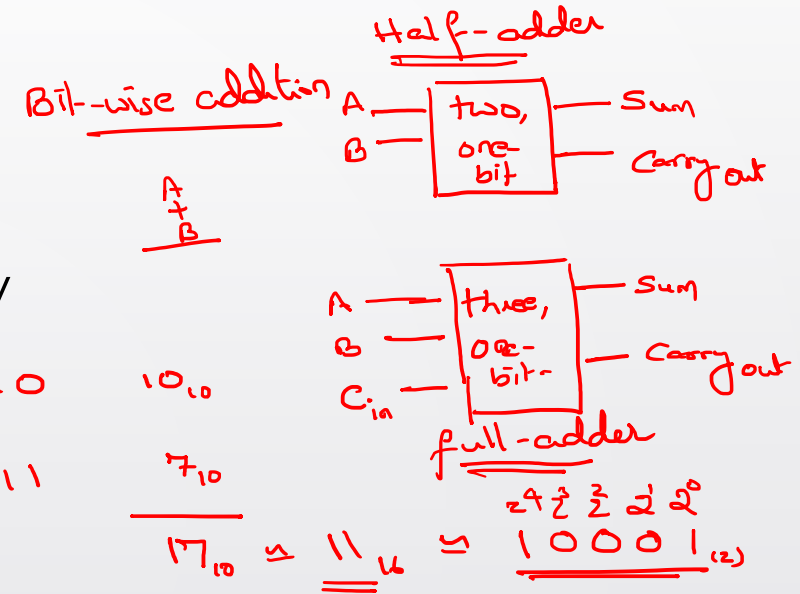 Half-adder
Bit-wise addition
A
+
B
A
B
two,
one-
bit
Sum
Carry out
A
B
Cin
three,
one-
bit-
Sum
Carry out
full-adder
0 10₁₀
11 7₁₀
2⁴ 2³ 2² 2¹ 2⁰
17₁₀ = 11₁₆ = 10001₍₂₎